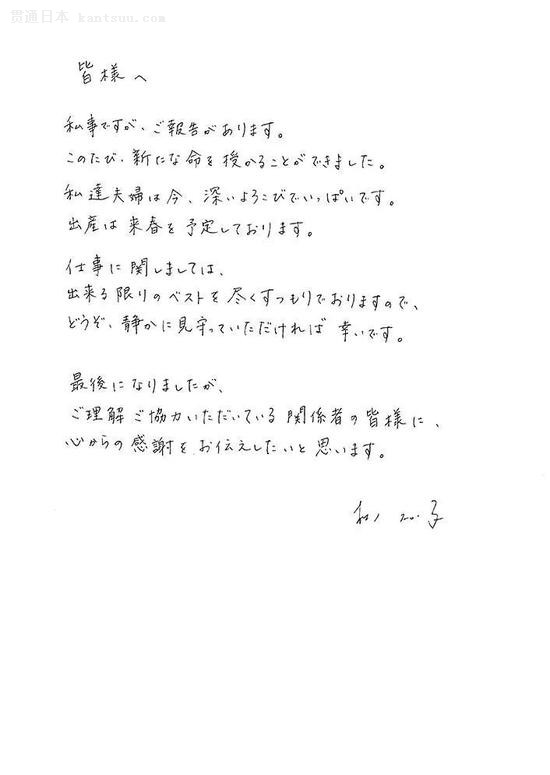 贯通日本 kantsuu.com
皆様へ
私事ですが、ご報告があります。
このたび、新たな命を授かることができました。
私達夫婦は今、深いよろこびでいっぱいです。
出産は来春を予定しております。
仕事に関しましては、
出来る限りのベストを尽くすつもりでおりますので、
どうぞ、静かに見守っていただければ幸いです。
最後になりましたが、
ご理解ご協力いただいている関係者の皆様に、
心からの感謝をお伝えしたいと思います。